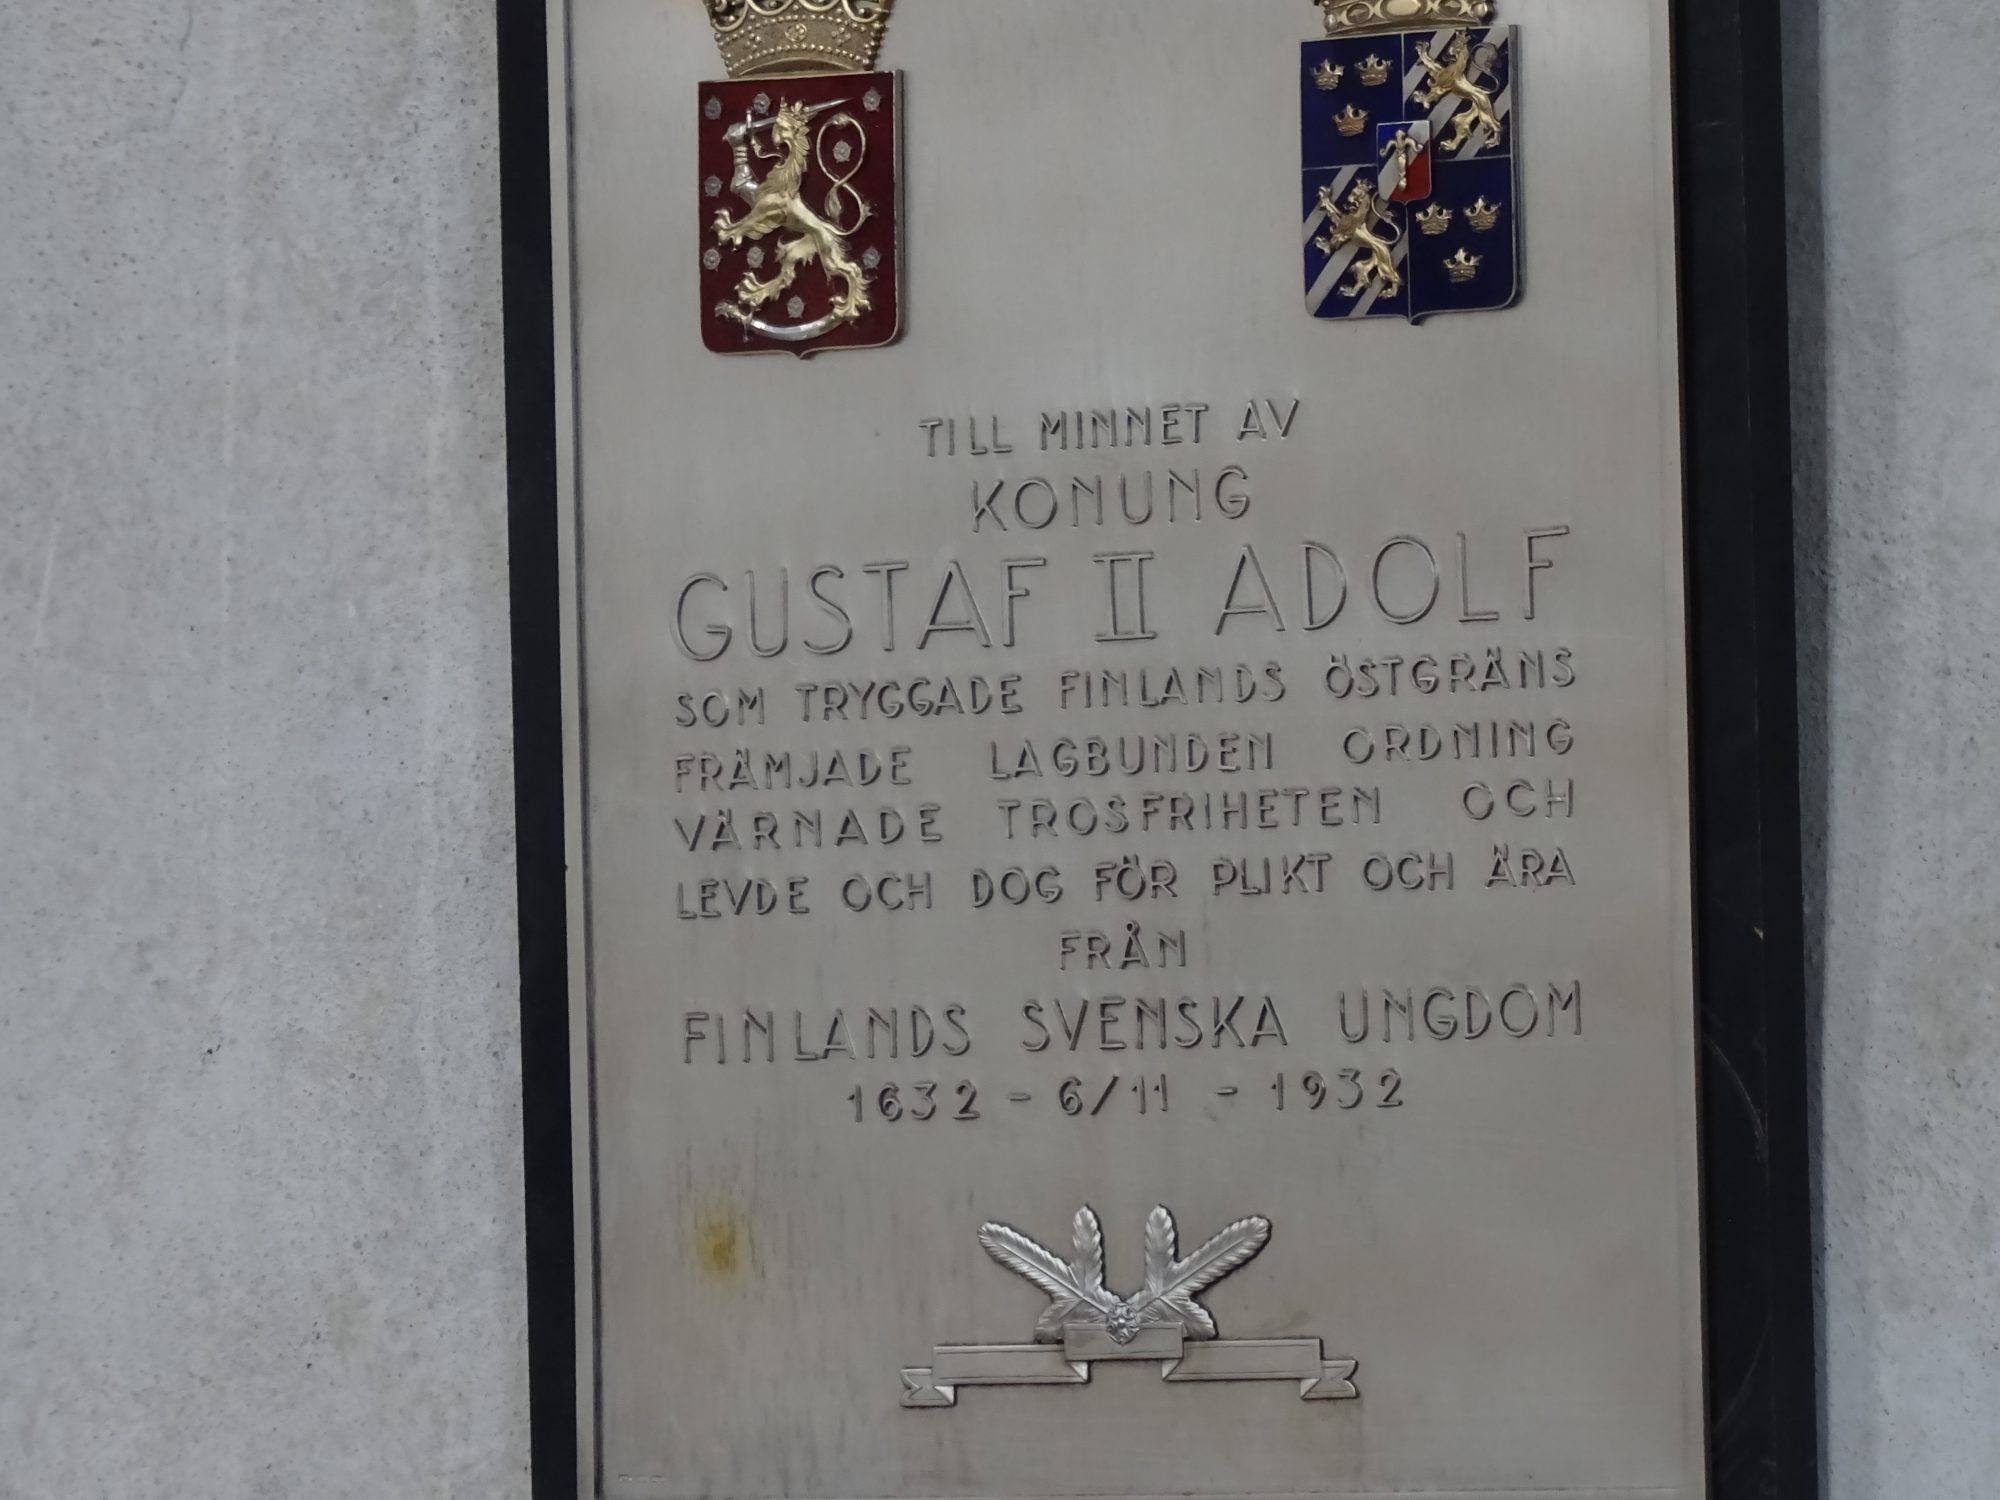 TILL MINNET AV
KONUNG
GUSTAF II ADOLF
SOM TRYGGADE FINLANDS ÖSTGRÄNS
FRÄMJADE LAGBUNDEN ORDNING
VÄRNADE TROSFRIHETEN OCH
LEVDE OCH DOG FÖR PLIKT OCH ÄRA
FRÅN
FINLANDS SVENSKA UNGDOM
1632 - 6/11 - 1932